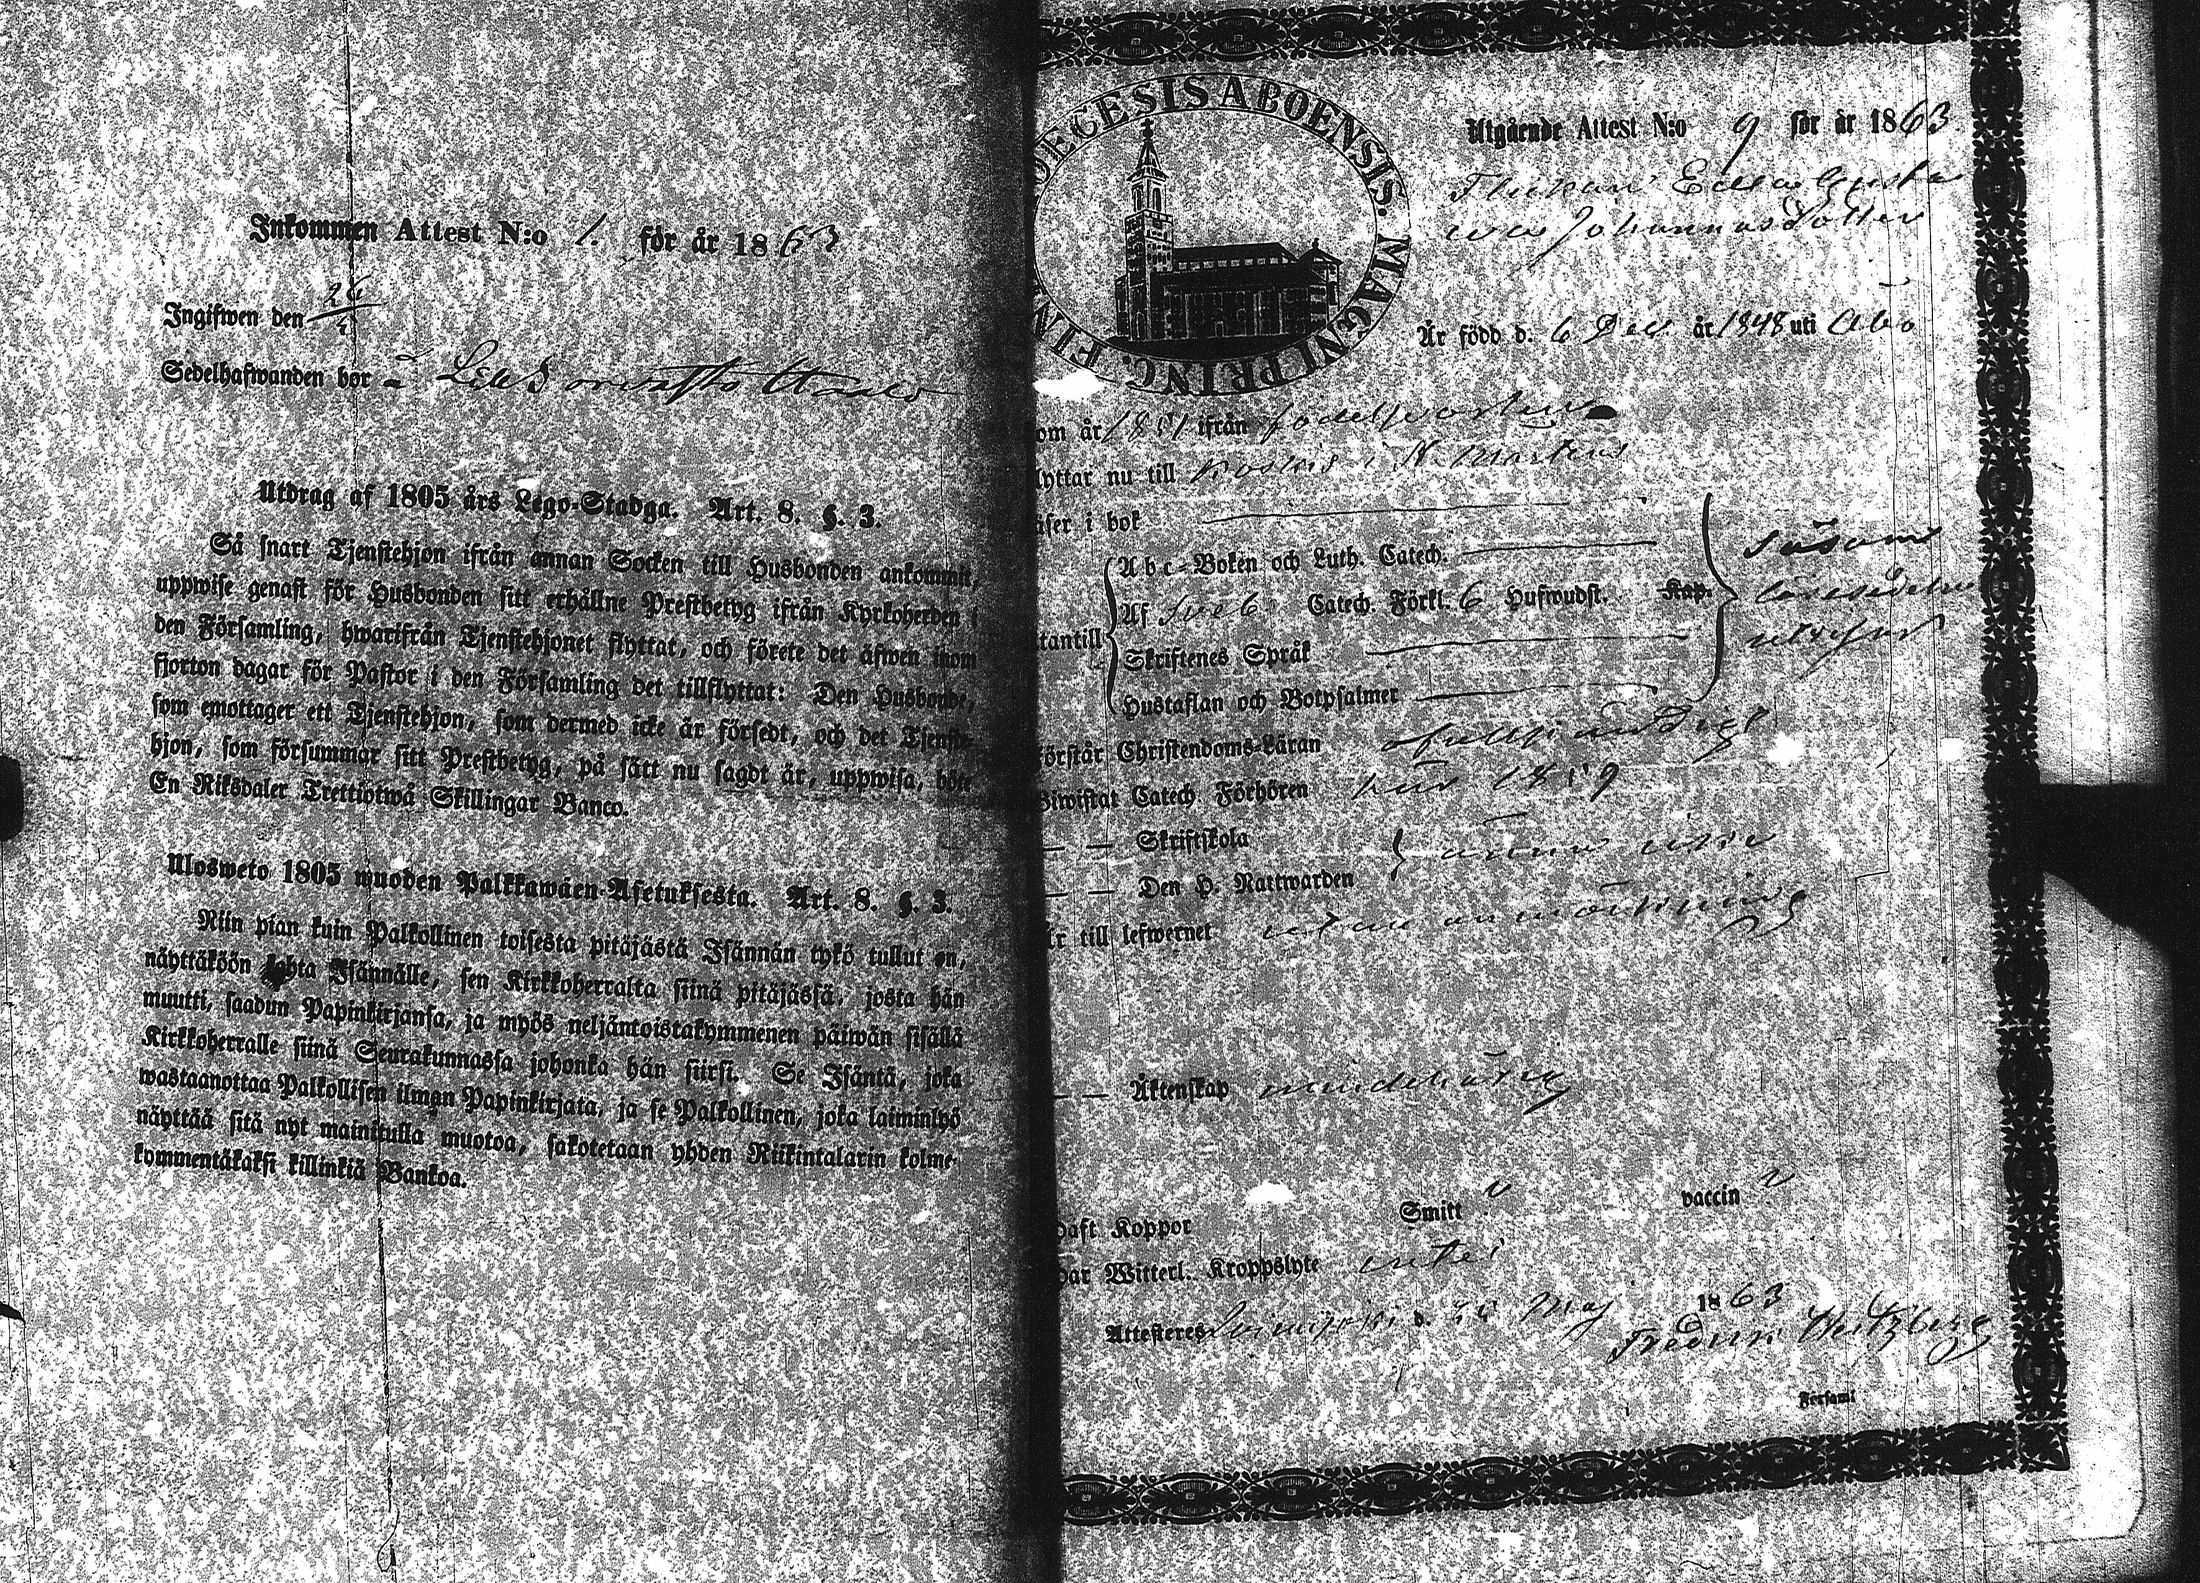 Inkommen Attest N:o 1. för år 1863
Ingifwen den 26/5
Sedelhafwanden bor å
Utdrag af 1805 års Lego-Stadga. Art. 8. §. 3.
Så snart Tjenstehjon ifrån annan Socken till Husbonden ankommit,
uppwise genast för Husbonden sitt erhållne Prestbetyg ifrån Kyrkoherden i
den Församling, hwarifrån Tjenstehjonet flyttat, och förete det äfwen inom
fjorton dagar för Pastor i den Församling det tillflyttat: Den Husbonde,
som emottager ett Tjenstehjon, som dermed icke är försedt, och det Tjenste-
hjon, som försummar sitt Prestbetyg, på sätt nu sagdt är, uppwisa, böte
En Riksdaler Trettiotwå Skillingar Banco.
Ulosweto 1805 wuoden Palkkawäen-Asetuksesta. Art. 8. §. 3.
Niin pian kuin Palkollinen toisesta pitäjästä Isännän tykö tullut on,
näyttäköön kohta Isännälle, sen Kirkkoherralta siinä pitäjässä, josta hän
muutti, saadun Papinkirjansa, ja myös neljäntoistakymmenen päiwän sisällä
Kirkkoherralle siinä Seurakunnassa johonka hän siirsi. Se Isäntä, joka
wastaanottaa Palkollisen ilman Papinkirjata, ja se Palkollinen, joka laiminlyö
näyttää sitä nyt mainitulla muotoa, sakotetaan yhden Riikintalarin kolme-
kymmentäkaksi killinkiä Bankoa.
OECESIS ABOENSIS. MAGNI PRINC. FIN
Utgående Attest N:o 9 för år 1863.
Flickan Edla Gusta
va Johannasdotter
Är född d. 6 Dec. år 1848 uti Åbo
om år 1851 ifrån födelseorten
lyttar nu till Koskis i St Mårtens
äser i bok
Abc-Boken och Luth. Catech.
Af Sveb Catech. Förkl. 6 Hufwudst. Kap.
tantill
Skriftenes Språk
Hustaflan och Botpsalmer
såsom
läsesedeln
utvisar
örstår Christendoms-Läran ofullständigt
Biwistat Catech Förhören 1859
— — Skriftskola
ännu icke
— — Den H. Nattwarden
r till lefwernet utan anmärkning
— — Äktenskap minderårig
haft Koppor Smitt v vaccin v
har Witterl. Kroppslyte intet
Attesteres d. Maj 1863
Fredrik
Församl